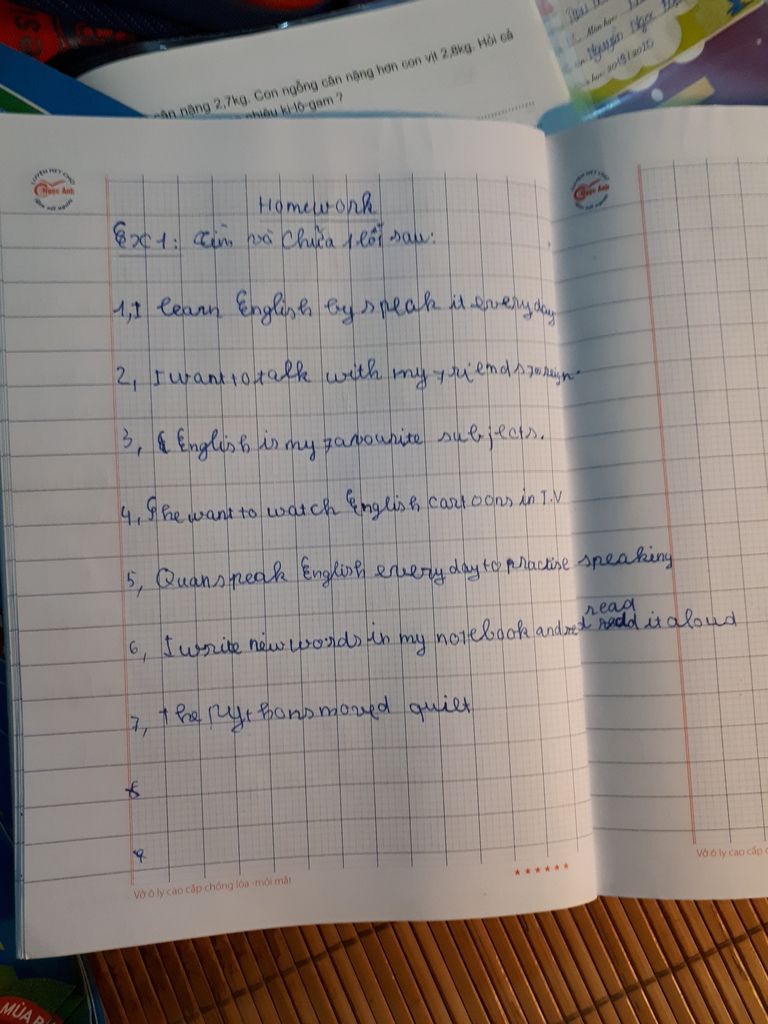 cân nặng 2,7kg. Con ngỗng cân nặng hơn con vịt 2,8kg. Hỏi cả
nhiêu ki-lô-gam ?
Môn học:
Nguyễn Ngọc
học: 2019/2020
LUYỆN VIẾT CHỮ
Ngọc Ánh
Homework
Ex 1: Tìm và chữa 1 lỗi sau:
1, I learn English by speak it every day
2, I want to talk with my friends foreign
3, English is my favourite subjects.
4, She want to watch English cartoons in T.V
5, Quan speak English every day to practise speaking
read
6, I write new words in my notebook and it aloud
7, the pythons moved quiet
8
9
Vở ô ly cao cấp chống lóa -mỏi mắt
Vở ô ly cao cấp c
MÙA